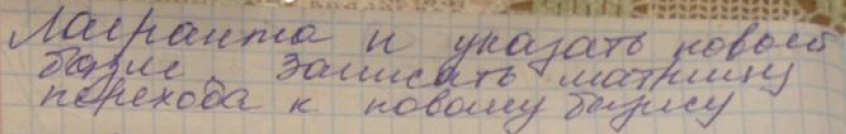 Лагранжа и указать новый
базис записать матрицу
перехода к новому базису